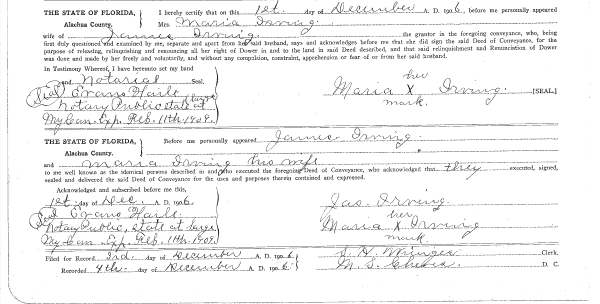 THE STATE OF FLORIDA, Alachua County. I hereby certify that on this 1st. day of December A. D. 1906, before me personally appeared
Mrs. Maria Irving
wife of James Irving the grantor in the foregoing conveyance, who, being
first duly questioned and examined by me, separate and apart from her said husband, says and acknowledges before me that she did sign the said Deed of Conveyance, for the
purpose of relinquishing and renouncing all her right of Dower in and to the land in said Deed described, and that said relinquishment and Renunciation of Dower
was done and made by her freely and voluntarily, and without any compulsion, constraint, apprehension or fear of or from her said husband.
In Testimony Whereof, I have hereunto set my hand
and Notarial Seal.
(Seal) Evans Haile
Notary Public state at large
My Com. Exp. Feb. 11th 1909.
her
Maria X Irving [SEAL.]
mark.
THE STATE OF FLORIDA, Alachua County. Before me personally appeared James Irving
and Maria Irving his wife
to me well known as the identical persons described in and who executed the foregoing Deed of Conveyance, who acknowledged that they executed, signed,
sealed and delivered the said Deed of Conveyance for the uses and purposes therein contained and expressed.
Acknowledged and subscribed before me this,
1st. day of Dec. A. D. 1906.
(Seal) Evans Haile
Notary Public, state at large
My Com. Exp. Feb. 11th 1909.
Jas. Irving
her
Maria X Irving
mark.
Filed for Record 3rd. day of December A. D. 1906 S. H. Wienges Clerk.
Recorded 4th. day of December A. D. 1906 M. S. D. C.